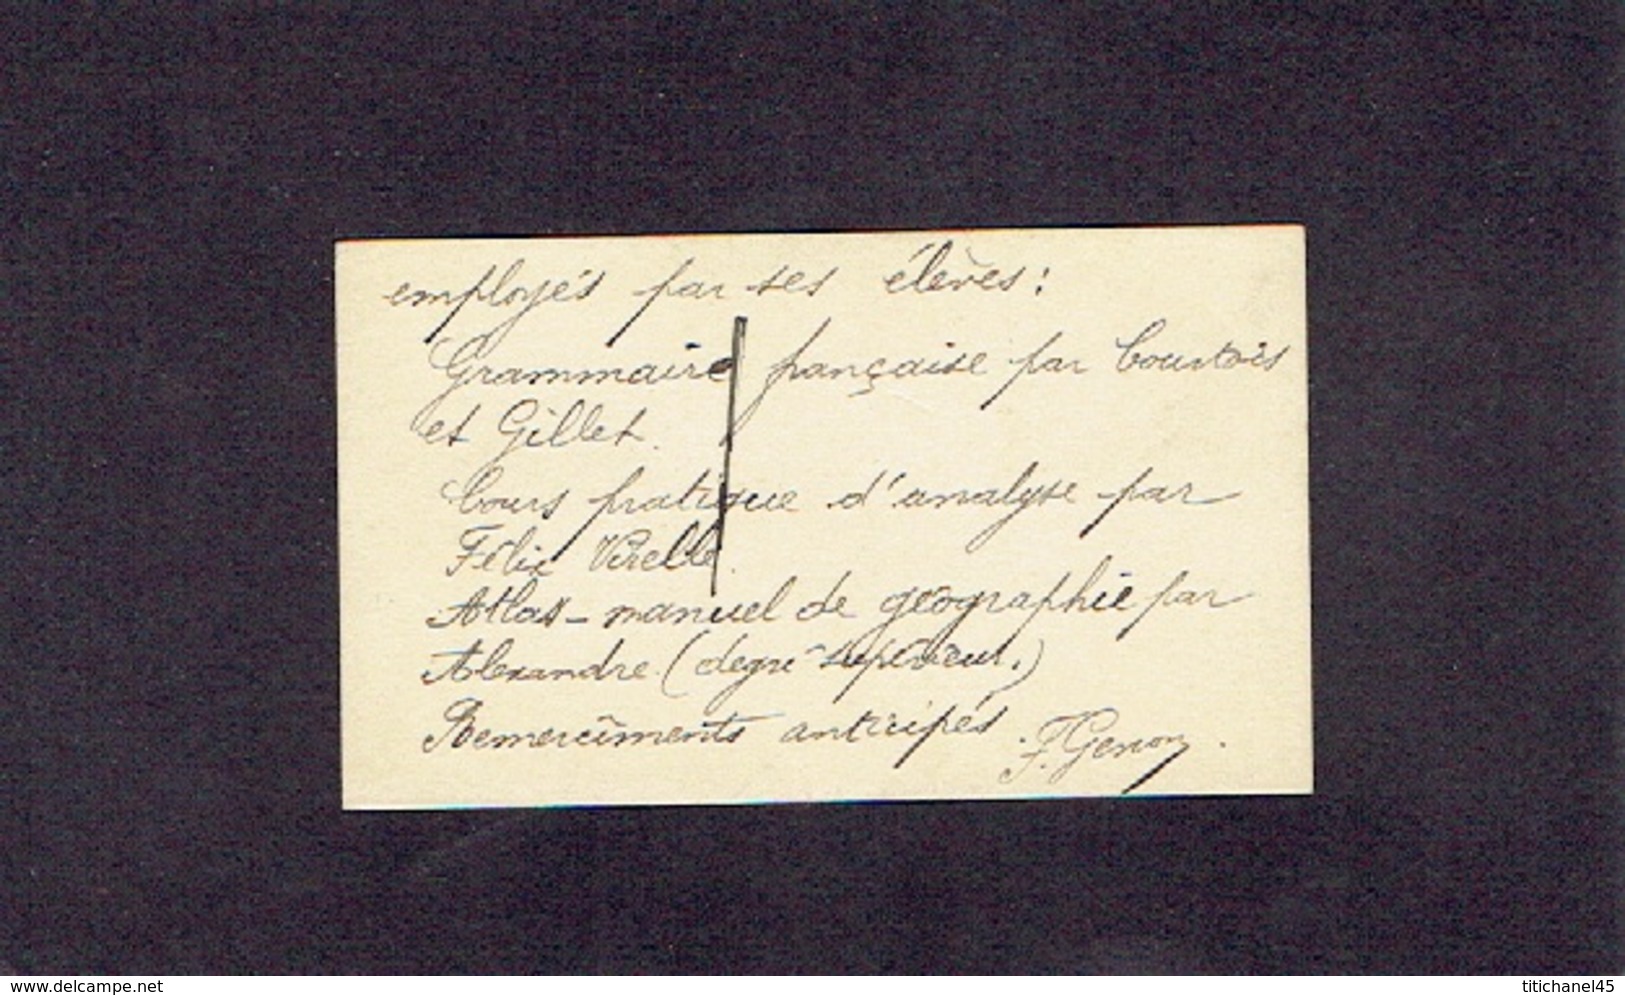 employés par ses élèves :
Grammaire française par Courtois
et Gillet.
Cours pratique d'analyse par
Félix Virelle.
Atlas-manuel de géographie par
Alexandre (degré supérieur.)
Remercîments anticipés.
F. Genon.
delcampe.net
titichanel45